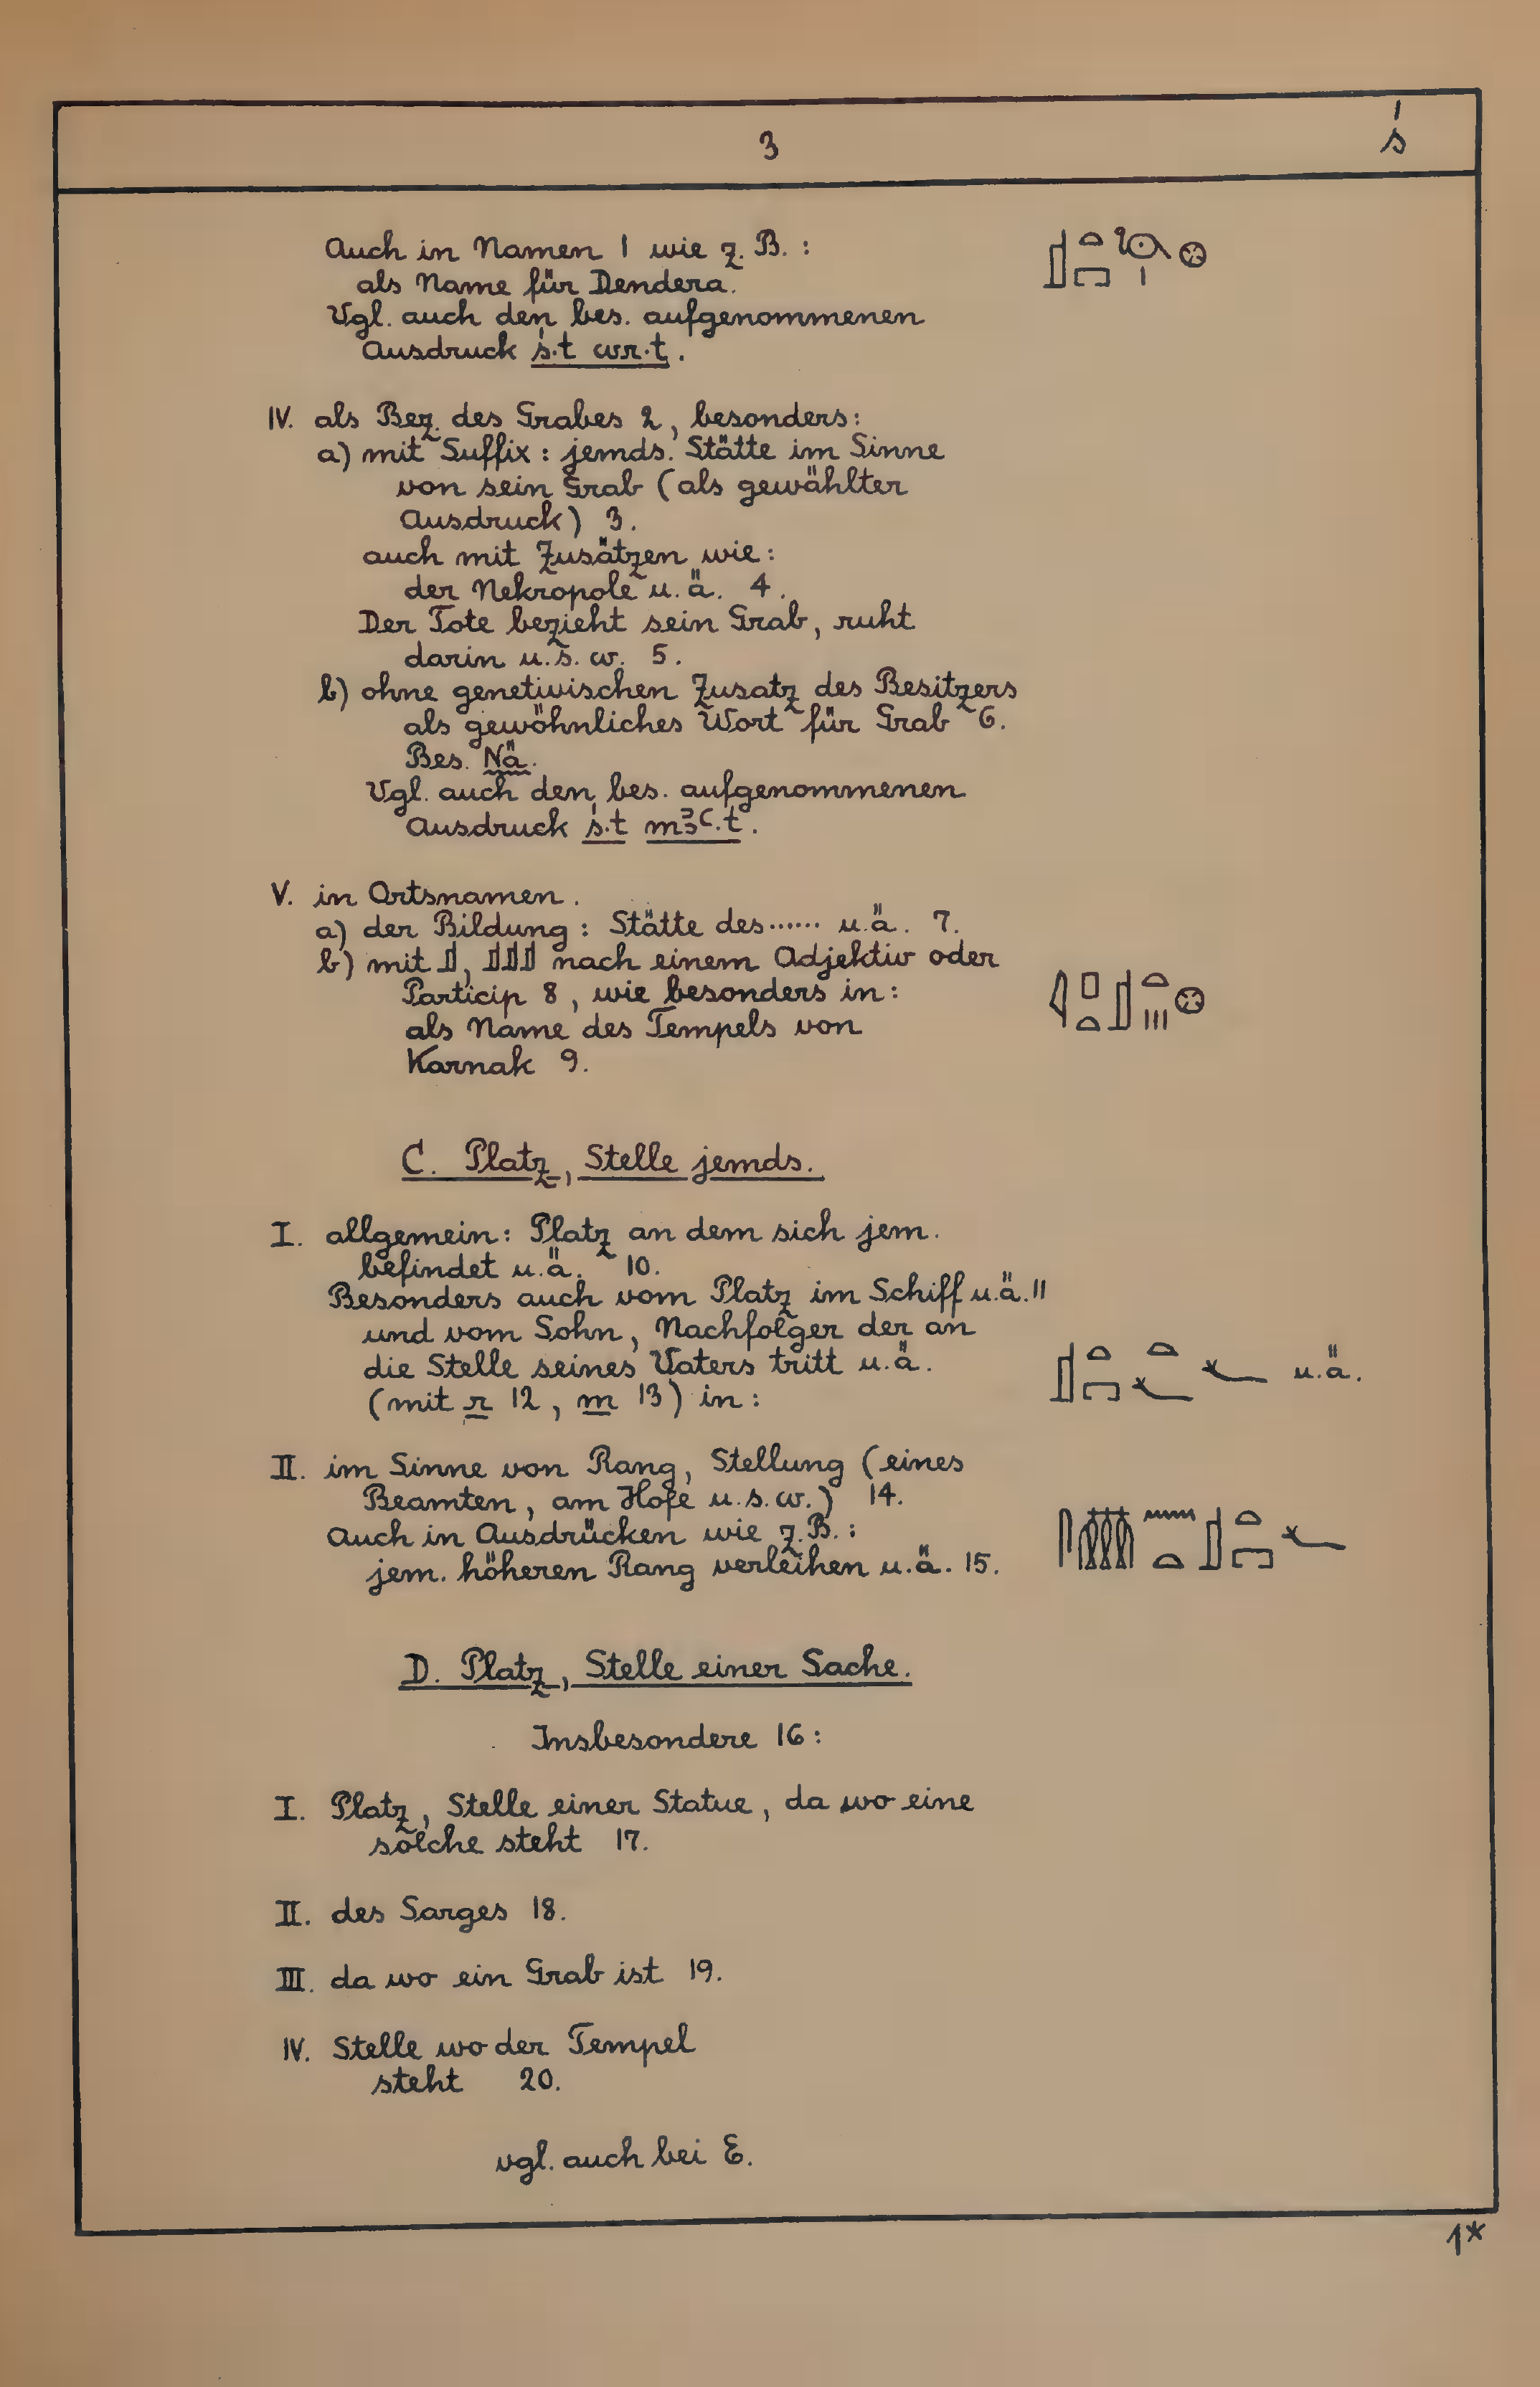 3
ś
Auch in Namen 1 wie z. B. :
als Name für Dendera.
Vgl. auch den bes. aufgenommenen
Ausdruck ś.t wr.t.
IV. als Bez. des Grabes 2, besonders:
a) mit Suffix : jemds. Stätte im Sinne
von sein Grab (als gewählter
Ausdruck) 3.
auch mit Zusätzen wie:
der Nekropole u.ä. 4.
Der Tote bezieht sein Grab, ruht
darin u.s.w. 5.
b) ohne genetivischen Zusatz des Besitzers
als gewöhnliches Wort für Grab 6.
Bes. Nä.
Vgl. auch den bes. aufgenommenen
Ausdruck ś.t mꜣꜥ.t.
V. in Ortsnamen.
a) der Bildung : Stätte des ...... u.ä. 7.
b) mit 𓊨, 𓊨𓊨𓊨 nach einem Adjektiv oder
Particip 8, wie besonders in :
als Name des Tempels von
Karnak 9.
C. Platz, Stelle jemds.
I. allgemein: Platz an dem sich jem.
befindet u.ä. 10.
Besonders auch vom Platz im Schiff u.ä. 11
und vom Sohn, Nachfolger der an
die Stelle seines Vaters tritt u.ä.
(mit r 12, m 13) in :
u.ä.
II. im Sinne von Rang, Stellung (eines
Beamten, am Hofe u.s.w.) 14.
Auch in Ausdrücken wie z.B. :
jem. höheren Rang verleihen u.ä. 15.
D. Platz, Stelle einer Sache.
Insbesondere 16 :
I. Platz, Stelle einer Statue, da wo eine
solche steht 17.
II. des Sarges 18.
III. da wo ein Grab ist 19.
IV. Stelle wo der Tempel
steht 20.
vgl. auch bei E.
1*